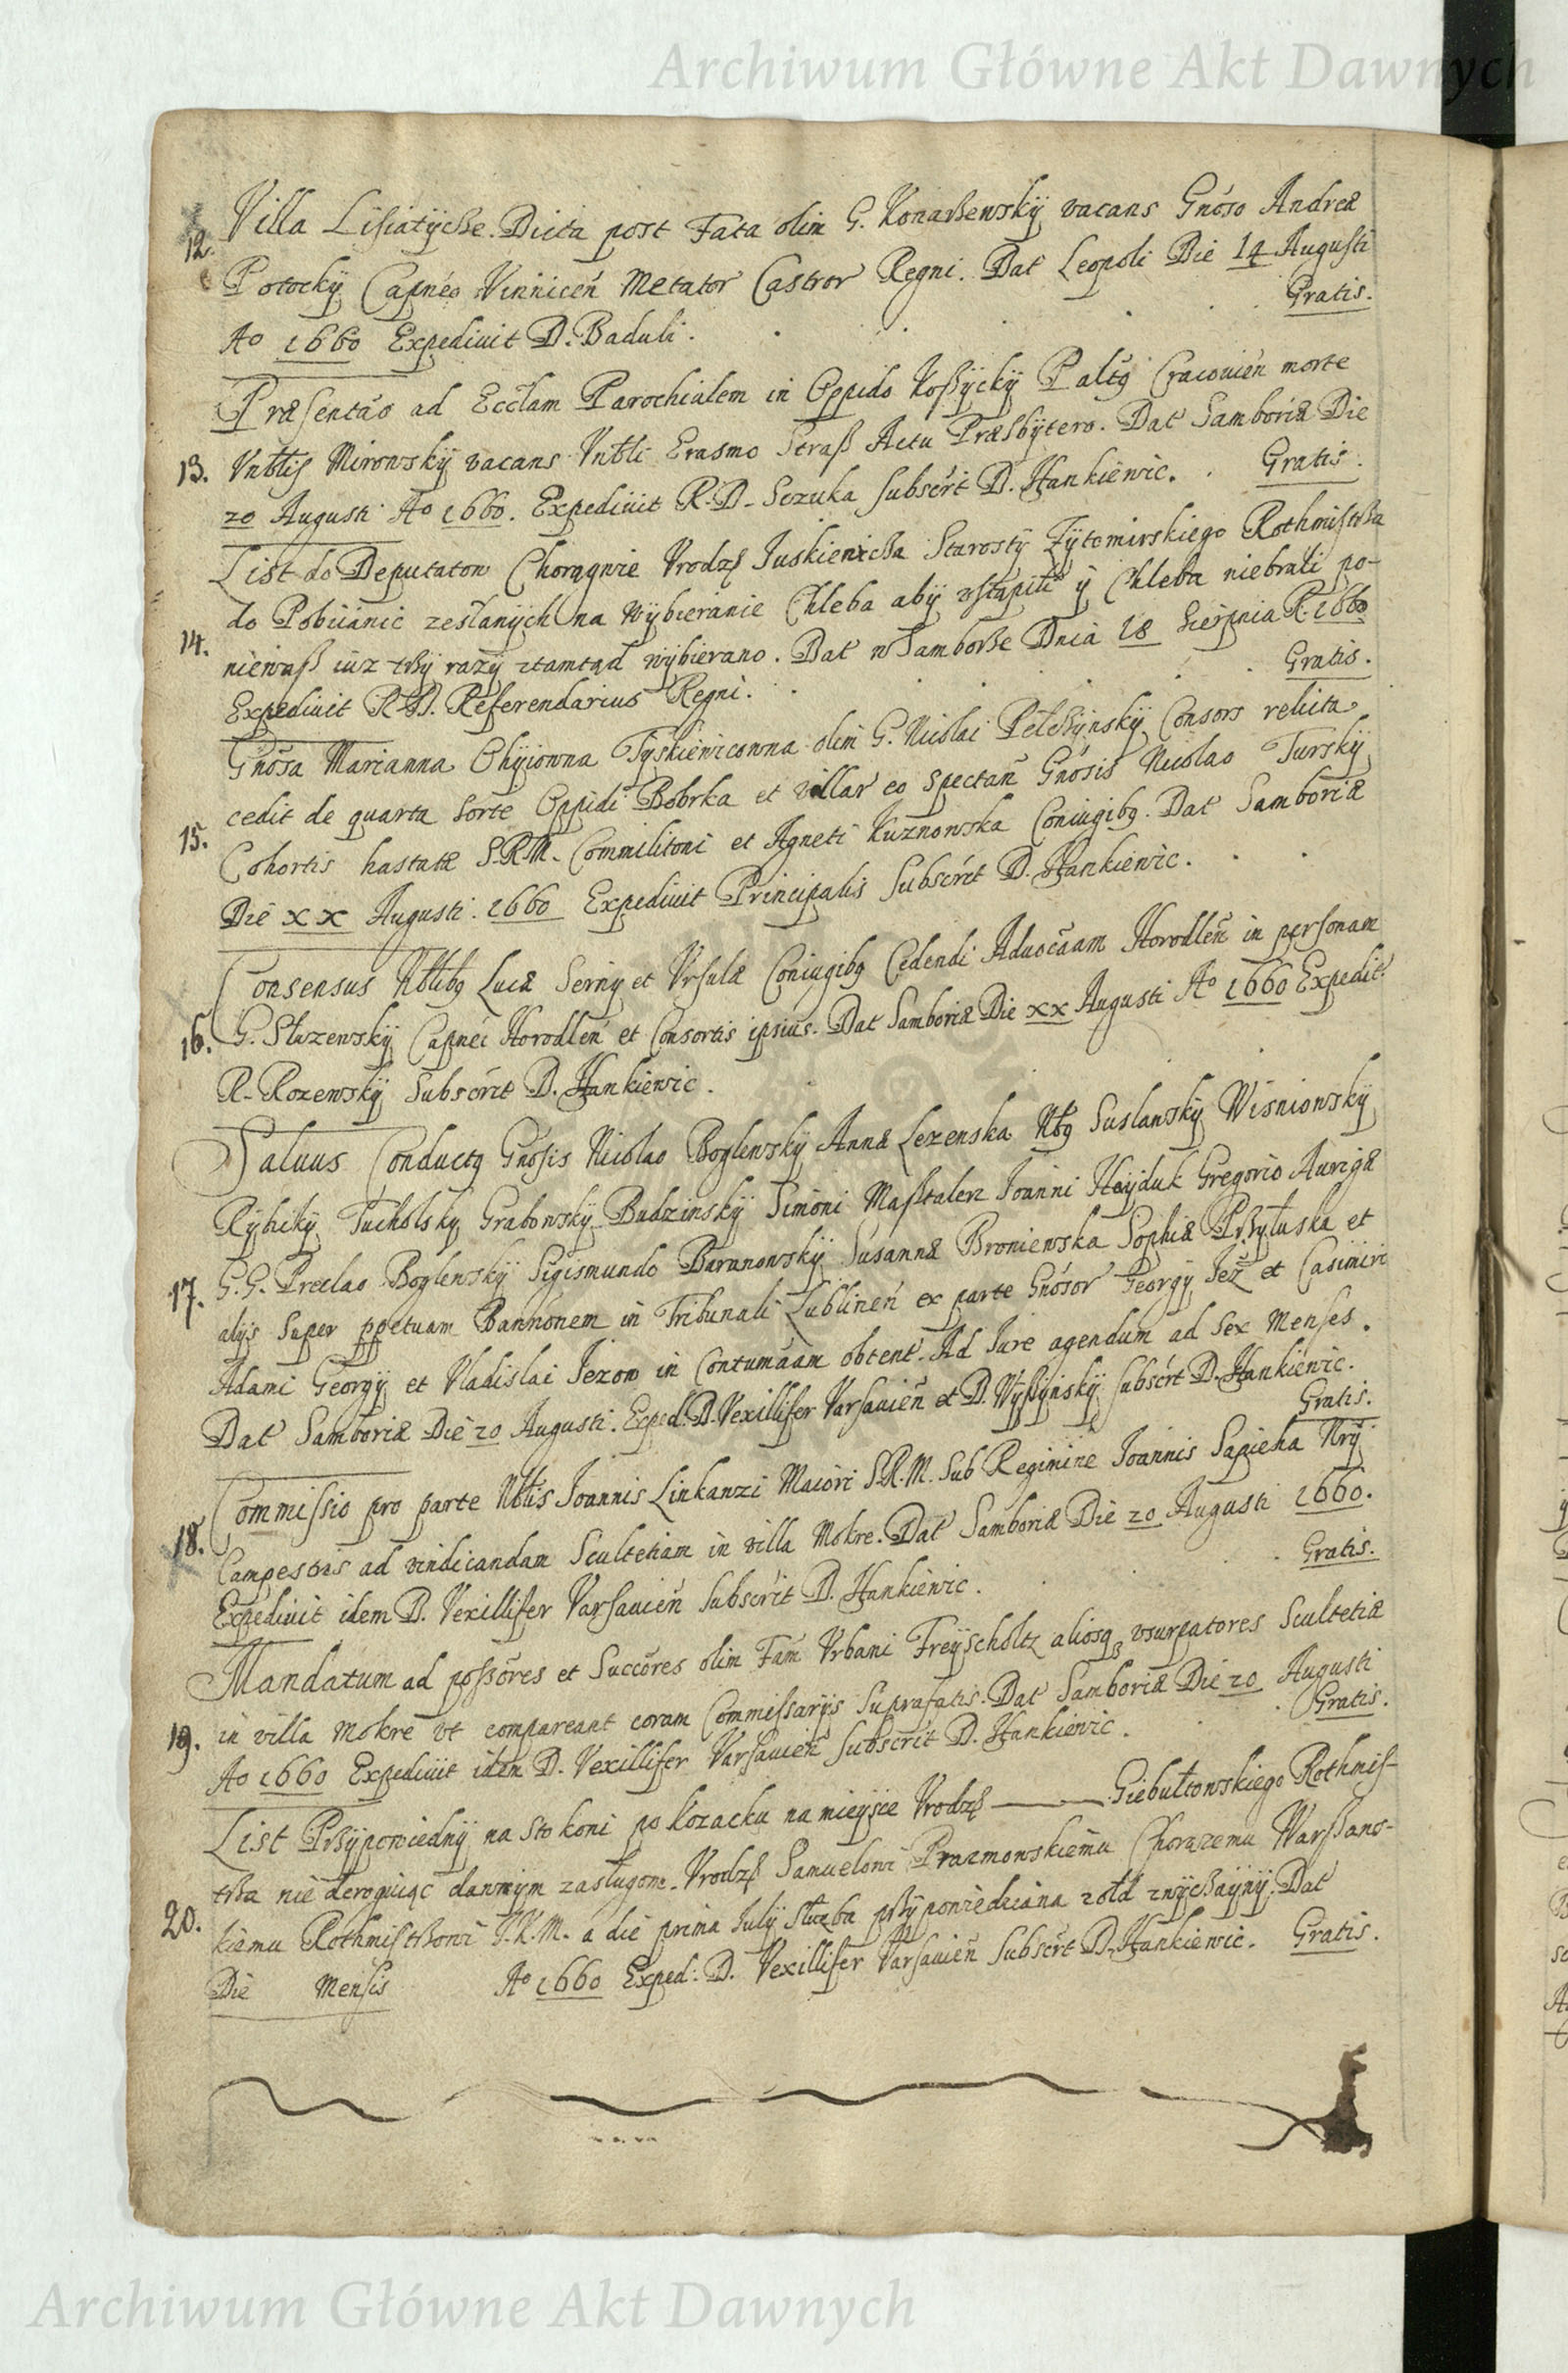 Archiwum Główne Akt Dawnych
Villa Lisiatÿcze. Dicta post Fata olim G. Konaßewskÿ vacans Gnoso Andreæ
12. Potockÿ Capneo Vinnicen Metator Castror Regni. Dat Leopoli Die 14 Augusti
Ao 1660 Expediuit D. Baduli. Gratis.
Præsentao ad Ecclam Parochialem in Oppido Koßÿckÿ Paltg Cracouien morte
13. Vnblis Mirowskÿ vacans Vnbli Erasmo Straß Actu Præsbÿtero. Dat Samboriæ Die
20 Augusti Ao 1660. Expediuit R. D. Sczuka subscrit D. Hankiewic. Gratis.
List do Deputatow Chorągwie Vrodz Juskiewicza Starostÿ Zÿtomirskiego Rothmistrza
do Pobiianic zesłanÿch na wÿbieranie Chleba abÿ vstąpili ÿ Chleba niebrali po-
14. niewaß iuz trzÿ razÿ ztamtąd wÿbierano. Dat w Samborze Dnia 18 Sierpnia R. 1660
Expediuit R. D. Referendarius Regni. Gratis.
Gnosa Marianna Chÿiowna Tÿskiewiconna olim G. Nicolai Pełczÿnskÿ Consors relicta
cedit de quarta sorte Oppidi Bobrka et villar eo spectan Gnosis Nicolao Turskÿ
15. Cohortis hastatæ S.R.M. Commilitoni et Agneti Kuznowska Coniugibg. Dat Samboriæ
Die XX Augusti. 1660 Expediuit Principalis Subscrit D. Hankiewic.
Consensus Nblibg Lucæ Serny et Vrsulæ Coniugibg Cedendi Aduocaam Horodlen in personam
16. G. Słuzewskÿ Capnei Horodlen et Consortis ipsius. Dat Samboriæ Die XX Augusti Ao 1660 Expedit.
R. Rozewskÿ Subscrit D. Hankiewic.
Saluus Conductg Gnosis Nicolao Boglewskÿ Annæ Lezenska Nbg Suslanskÿ Wisniowskÿ
Rÿbikÿ Tucholskÿ Grabowskÿ Budzinskÿ Simoni Maßtalerz Ioanni Haÿduk Gregorio Aurigæ
17. G.G. Preclao Boglewskÿ Sigismundo Baranowskÿ Susannæ Broniewska Sophiæ Przÿłuska et
alÿs super ppetuam Bannonem in Tribunali Lublinen ex parte Gnosor Georgÿ Jez et Casimiri
Adami Georgÿ et Vladislai Jezow in Contumaam obtent. Ad Iure agendum ad sex Menses.
Dat Samboriæ Die 20 Augusti. Exped. D. Vexillifer Varsauien et D. Wÿßÿnskÿ subscrit D. Hankiewic.
Gratis.
Commissio pro parte Nblis Joannis Linkanzi Maiori S.R.M. sub Regimine Joannis Sapieha Nrÿ
18. Campestris ad vindicandam Scultetiam in villa Mokre. Dat Samboriæ Die 20 Augusti 1660.
Expediuit idem D. Vexillifer Varsauien Subscrit D. Hankiewic. Gratis.
Mandatum ad possores et Succores olim Fam Vrbani Freÿscholtz aliosq vsurpatores Scultetiæ
19. in villa Mokre vt compareant coram Commissarÿs suprafatis. Dat Samboriæ Die 20 Augusti
Ao 1660 Expediuit idem D. Vexillifer Varsauien Subscrit D. Hankiewic. Gratis.
List Przÿpowiednÿ na sto koni po kozacku na mieÿsce Vrodz —— Giebułtowskiego Rothmis-
trza nie deroguiąc dawnÿm zasługom. Vrodz Samuelowi Prazmowskiemu Chorązemu Warßaws-
20. kiemu Rothmistrzowi J.K.M. a die prima Julÿ Słuzba przÿpowiedziana zołd zwÿczaÿnÿ. Dat
Die Mensis Ao 1660 Exped: D. Vexillifer Varsauien Subscrit D. Hankiewic. Gratis.
Archiwum Główne Akt Dawnych